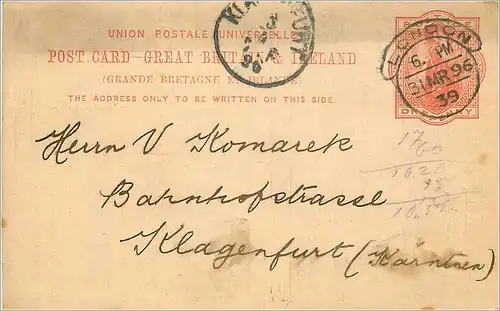 UNION POSTALE UNIVERSELLE
POST CARD–GREAT BRITAIN & IRELAND
(GRANDE BRETAGNE ET IRLANDE)
THE ADDRESS ONLY TO BE WRITTEN ON THIS SIDE.
KLAGENFURT
96
LONDON
6. PM
31 MR 96
39
ONE PENNY
Herrn V Komarek
Bahnhofstrasse
Klagenfurt (Kärnten)
1760
1620